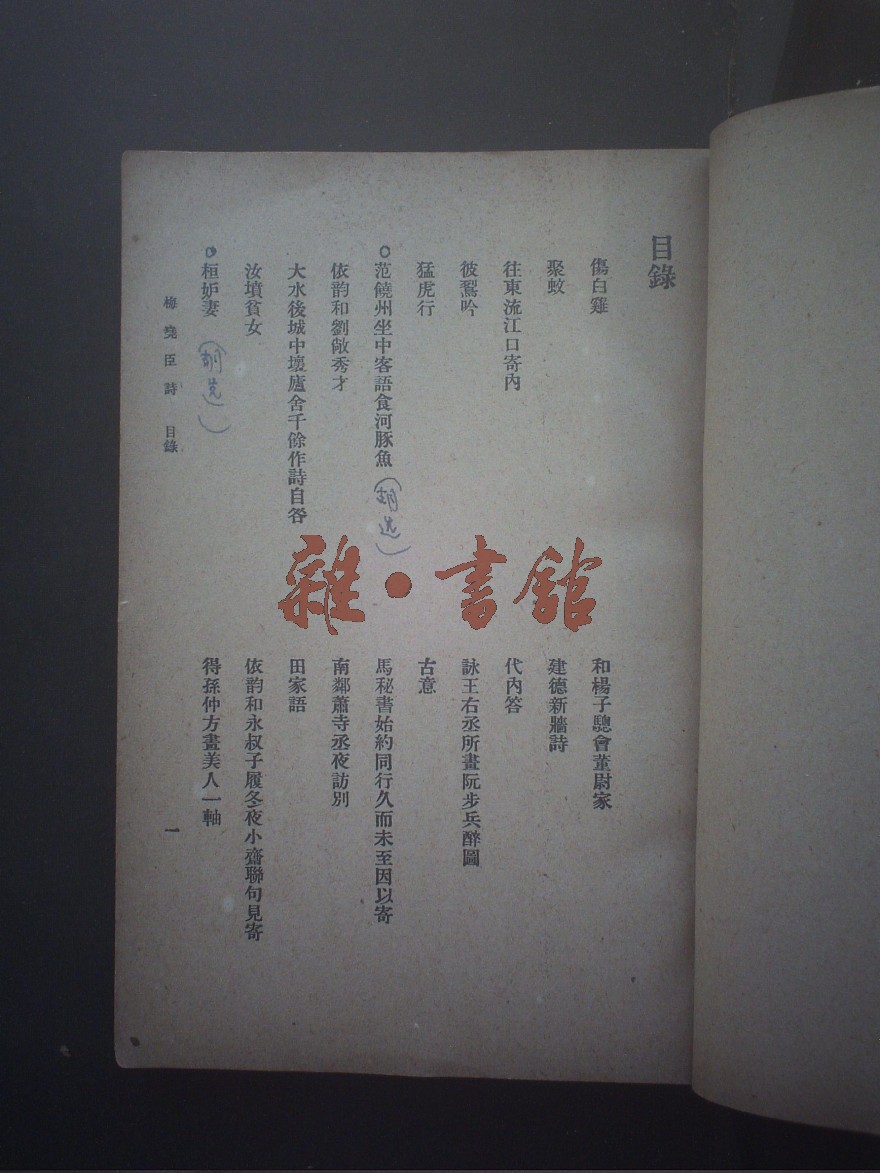 目錄
傷白雞
和楊子聰會董尉家
聚蚊
建德新牆詩
往東流江口寄內
代內答
彼鴷吟
詠王右丞所畫阮步兵醉圖
猛虎行
古意
范饒州坐中客語食河豚魚
(胡选)
馬秘書始約同行久而未至因以寄
依韵和劉敞秀才
南鄰蕭寺丞夜訪別
大水後城中壞廬舍千餘作詩自咎
田家語
汝墳貧女
依韵和永叔子履冬夜小齋聯句見寄
桓妒妻
(胡选)
得孫仲方畫美人一軸
梅堯臣詩 目錄
一
雜·書館